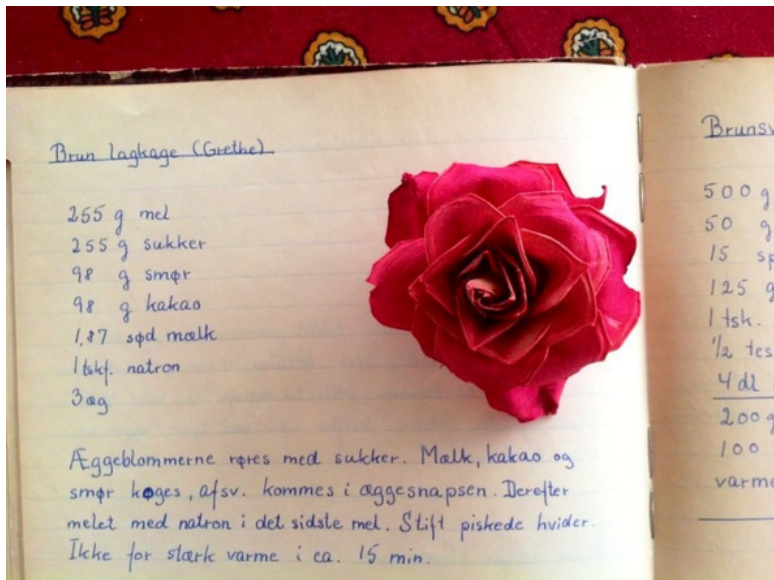 Brun lagkage (Grethe)
255 g mel
255 g sukker
98 g smør
98 g kakao
1,87 sød mælk
1 tskf. natron
3 æg
Æggeblommerne røres med sukker. Mælk, kakao og
smør koges, afsv. kommes i æggesnapsen. Derefter
melet med natron i det sidste mel. Stift piskede hvider.
Ikke for stærk varme i ca. 15 min.
500 g
50 g
15
125 g
1 tsk.
1/2
4 dl
200 g
100